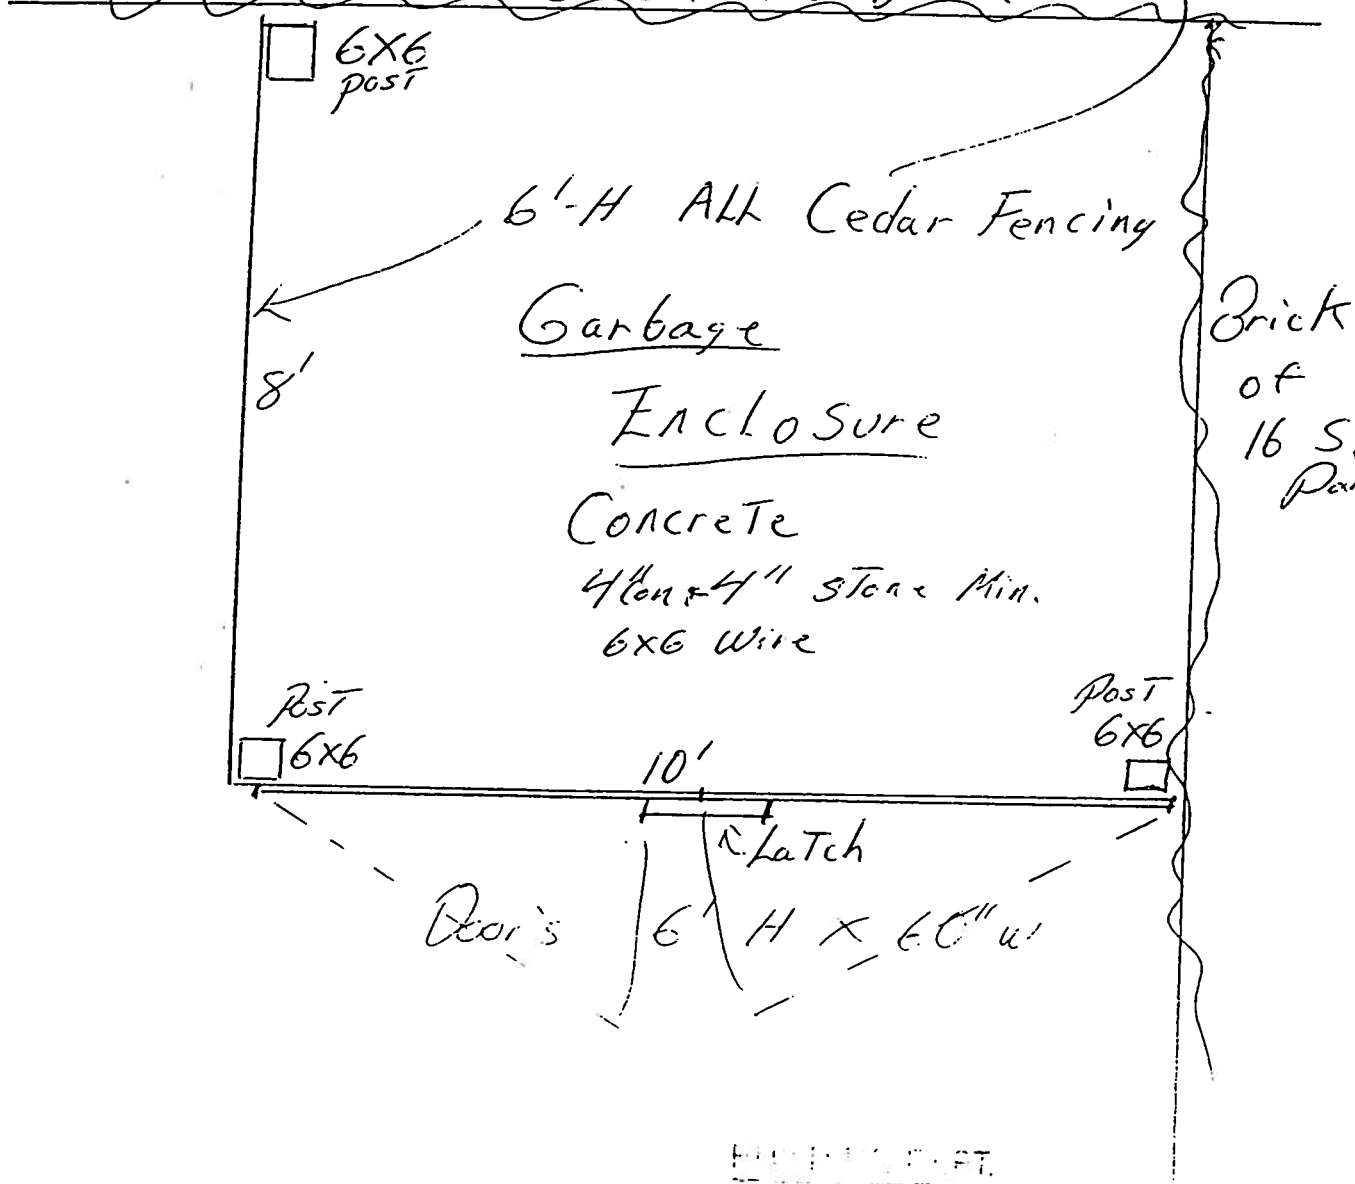 6X6
post
6'-H ALL Cedar Fencing
8'
Garbage
Enclosure
Brick
of
16 S.
Concrete
4" 4" stone Min.
6x6 Wire
Post
6x6
Post
6x6
10'
Latch
Door's 6' H X 60" w